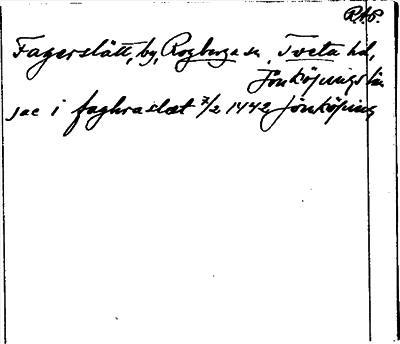 RAP.
Fagerslätt, by, Rogberga sn, Tveta hd,
Jönköpings län
jac i faghraslæt 7/2 1442 Jönköping